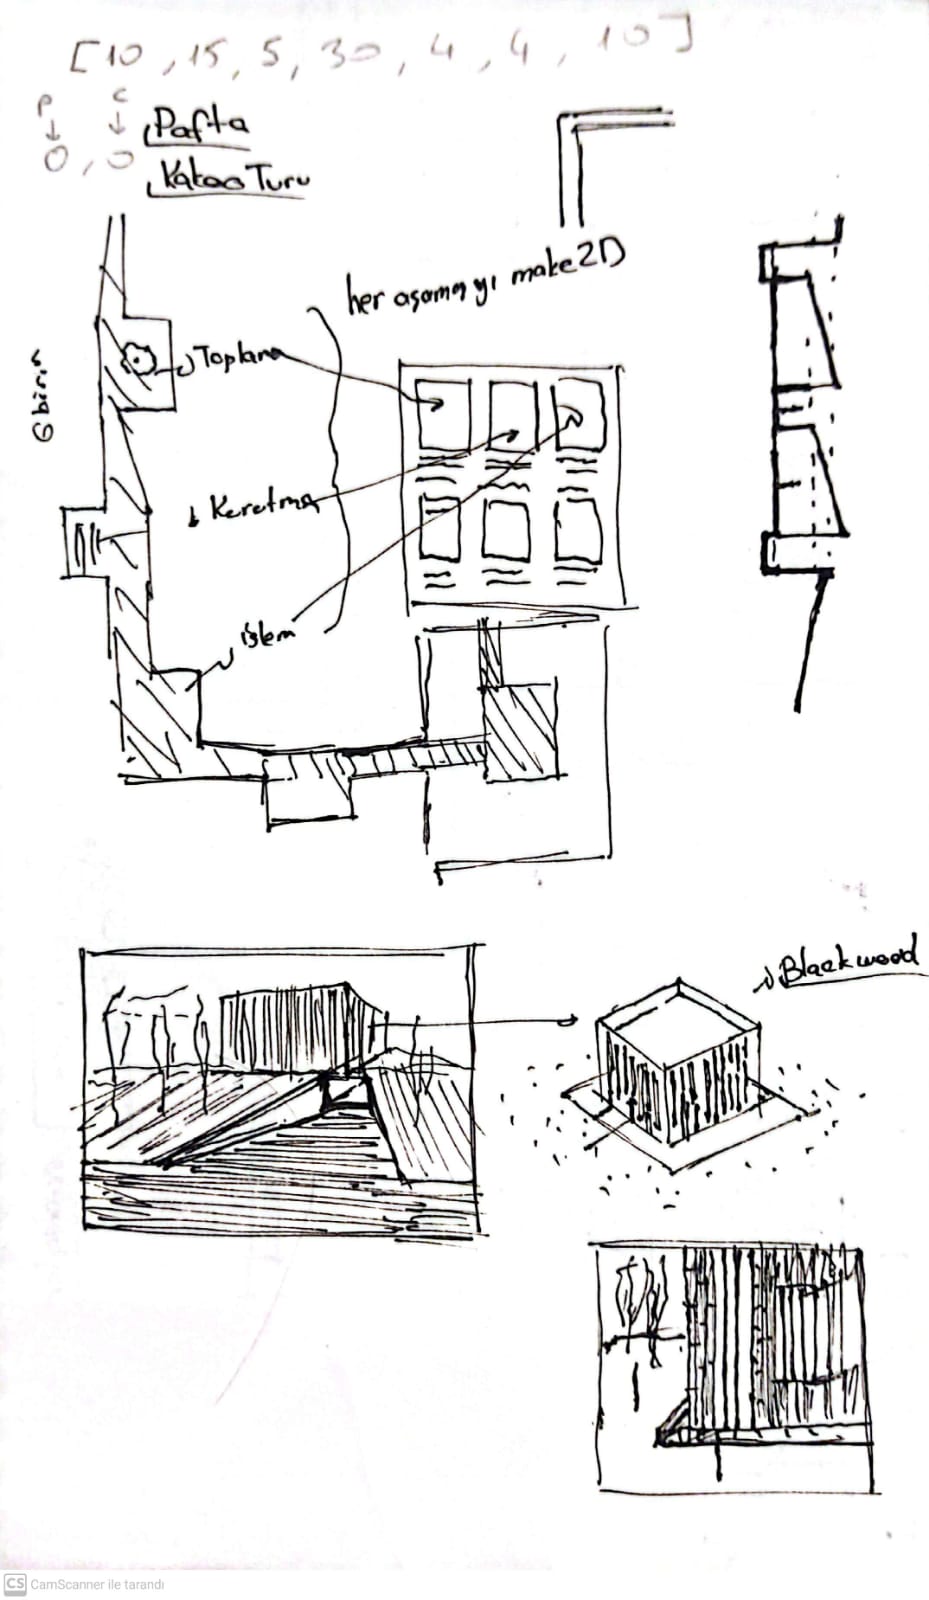 [10, 15, 5, 30, 4, 4, 10]
P C
↓ ↓
0, 0
Pafta
Kakao Turu
her aşamayı make2D
Toplama
6 birim
Kurutma
işlem
Blackwood
CS CamScanner ile tarandı